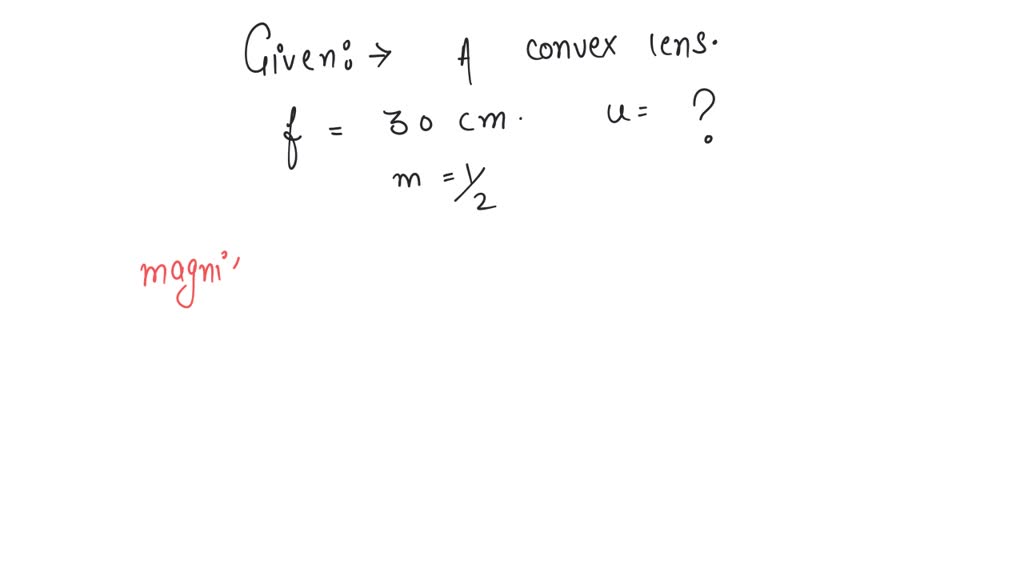 Given: → A convex lens.
f = 30 cm. u = ?
m = 1/2
magni